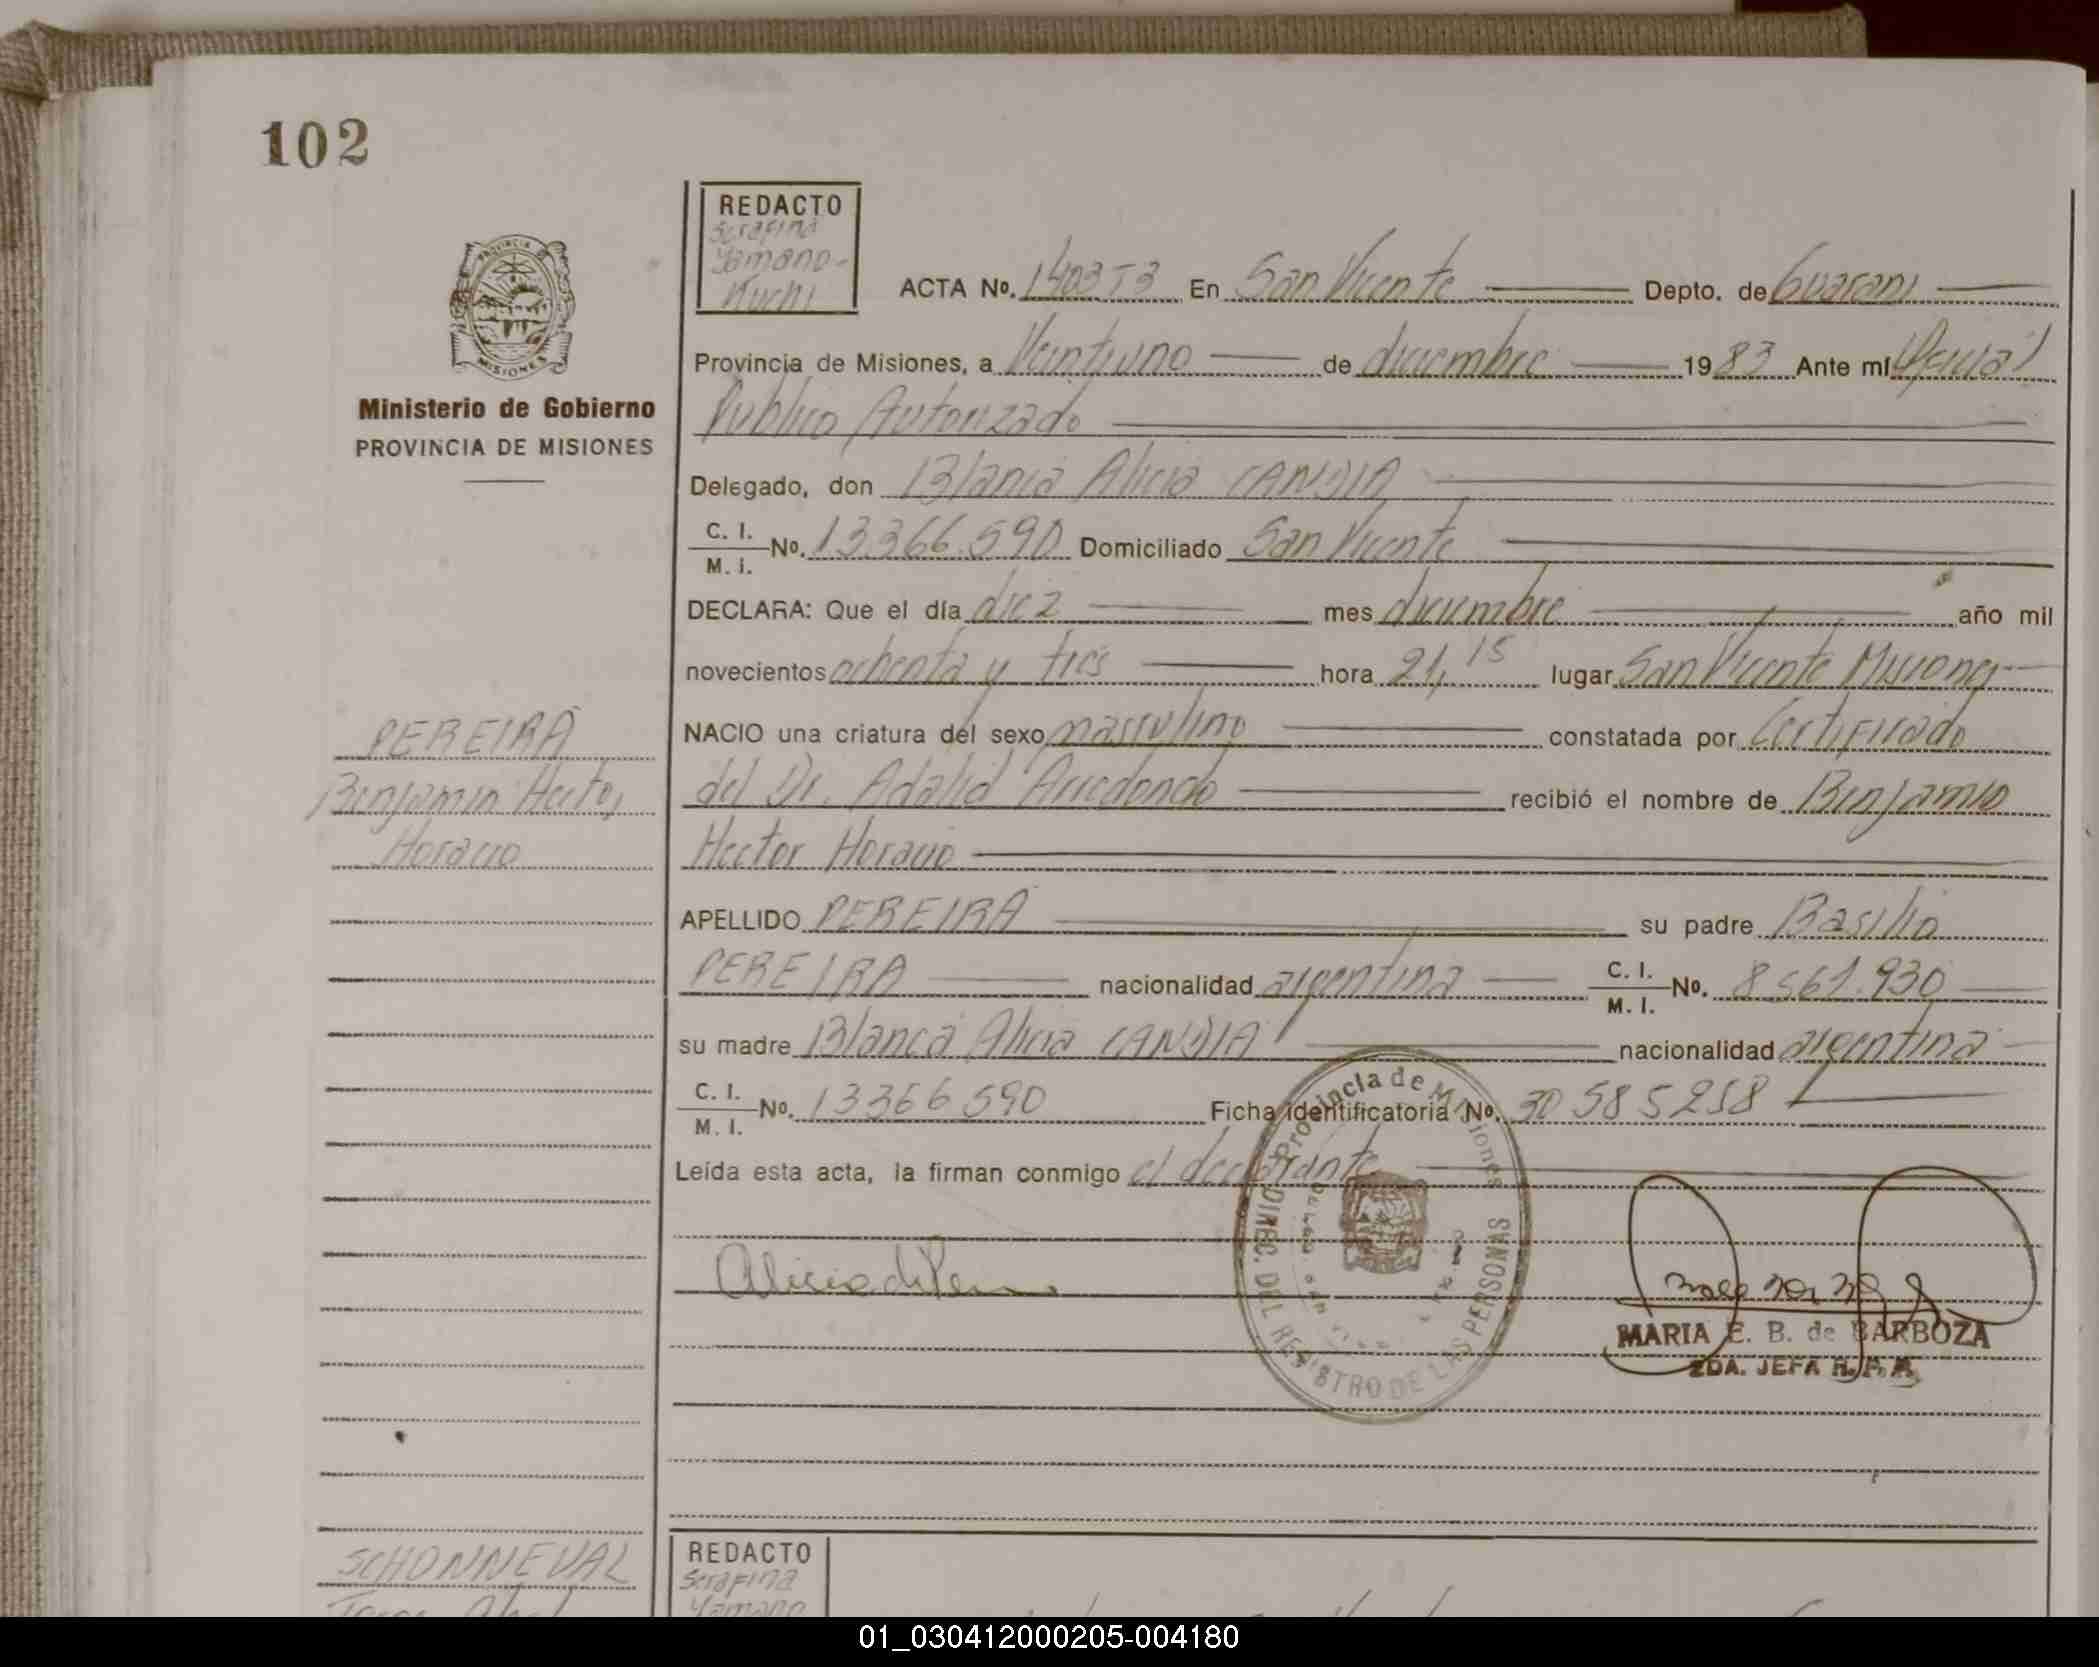 102
REDACTO
Serafina
Yamano-
Kuchi
ACTA No. 1403 T3 En San Vicente Depto. de Guarani
PROVINCIA
MISIONES
Provincia de Misiones, a Veintiuno de diciembre 1983 Ante mí Oficial
Ministerio de Gobierno
Publico Autorizado
PROVINCIA DE MISIONES
Delegado, don Blanca Alicia CANDIA
C. I.
M. I. No. 13366.590 Domiciliado San Vicente
DECLARA: Que el día diez mes diciembre año mil
novecientos ochenta y tres hora 21,15 lugar San Vicente Misiones
PEREIRA
NACIO una criatura del sexo masculino constatada por Certificado
Benjamin Hector
del Dr. Adalid Arredondo recibió el nombre de Benjamin
Horacio
Hector Horacio
APELLIDO PEREIRA su padre Basilio
PEREIRA nacionalidad argentina C. I.
M. I. No. 8561.930
su madre Blanca Alicia CANDIA nacionalidad argentina
C. I.
M. I. No. 13366590 Ficha identificatoria No. 30 585258
Leída esta acta, la firman conmigo el declarante
Provincia de Misiones
DIREC. DEL REGISTRO DE LAS PERSONAS
Alicia de Pereira
MARIA E. B. de BARBOZA
2DA. JEFA R. P. P.
SCHONNEVAL
REDACTO
Serafina
Yamano
01_030412000205-004180